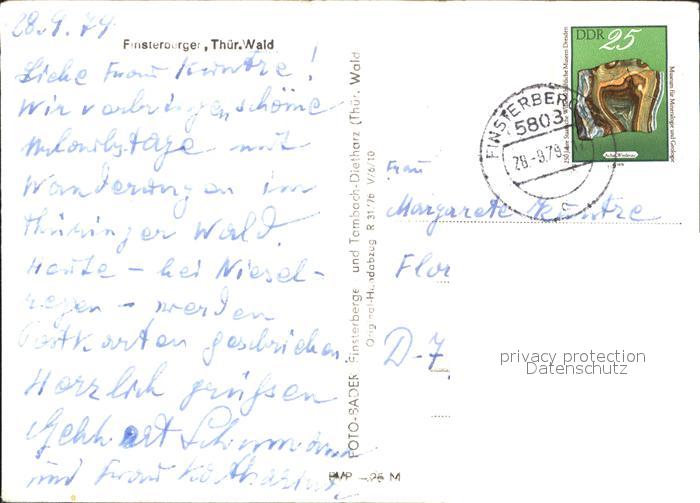 28.9.79
Finsterberger, Thür. Wald
Liebe Frau Kuntze!
Wir verbringen schöne
Urlaubstage mit
Wanderungen im
Thüringer Wald.
Heute - bei Niesel-
regen - werden
Postkarten geschrieben.
Herzlich grüßen
Gebhart Schumann
und Frau Katharina
FOTO-BADER Finsterberge und Tambach-Dietharz (Thür. Wald
Original-Handabzug R 31/76 V/6/10
EVP -.25 M
DDR 25
250 Jahre Staatliche Museen Dresden
Museum für Mineralogie und Geologie
FINSTERBERG
5803
28.-9.79
Frau
Margarete Kuntze
Flor
D-7
privacy protection
Datenschutz